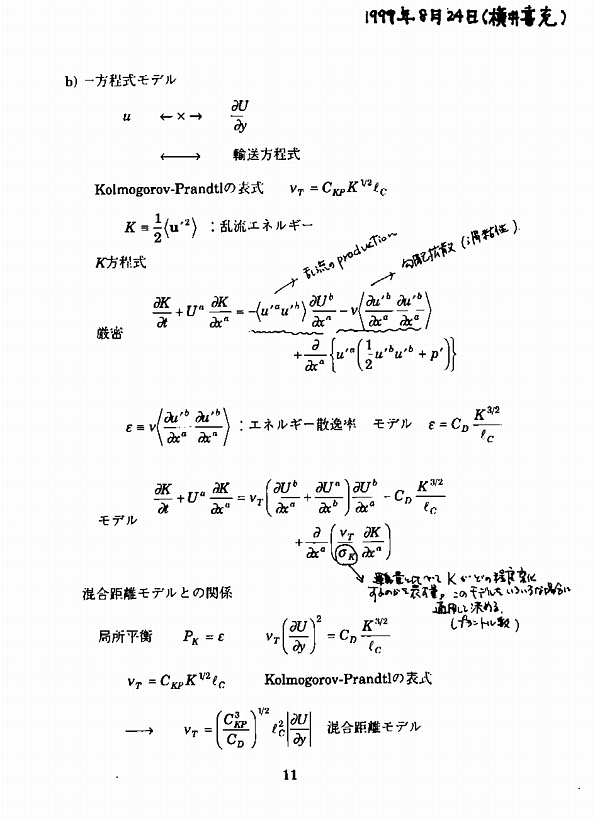 1999年8月24日(横井喜充)
b) 一方程式モデル
u ←×→ ∂U/∂y
←→ 輸送方程式
Kolmogorov-Prandtlの表式 ν_T = C_KP K^{1/2} ℓ_C
K ≡ 1/2 ⟨u'^2⟩ : 乱流エネルギー
K方程式
乱流のproduction
勾配拡散(渦粘性).
厳密 ∂K/∂t + U^a ∂K/∂x^a = −⟨u'^a u'^b⟩ ∂U^b/∂x^a − ν⟨∂u'^b/∂x^a ∂u'^b/∂x^a⟩
+ ∂/∂x^a {u'^a (1/2 u'^b u'^b + p')}
ε ≡ ν⟨∂u'^b/∂x^a ∂u'^b/∂x^a⟩ : エネルギー散逸率 モデル ε = C_D K^{3/2}/ℓ_C
モデル ∂K/∂t + U^a ∂K/∂x^a = ν_T (∂U^b/∂x^a + ∂U^a/∂x^b) ∂U^b/∂x^a − C_D K^{3/2}/ℓ_C
+ ∂/∂x^a (ν_T/σ_K ∂K/∂x^a)
運動量に比べて K がどの程度変化
するのかを表す量。このモデルをいろいろな場合に
適用して決める.
(プラントル数)
混合距離モデルとの関係
局所平衡 P_K = ε ν_T (∂U/∂y)^2 = C_D K^{3/2}/ℓ_C
ν_T = C_KP K^{1/2} ℓ_C Kolmogorov-Prandtlの表式
→ ν_T = (C_KP^3/C_D)^{1/2} ℓ_C^2 |∂U/∂y| 混合距離モデル
11